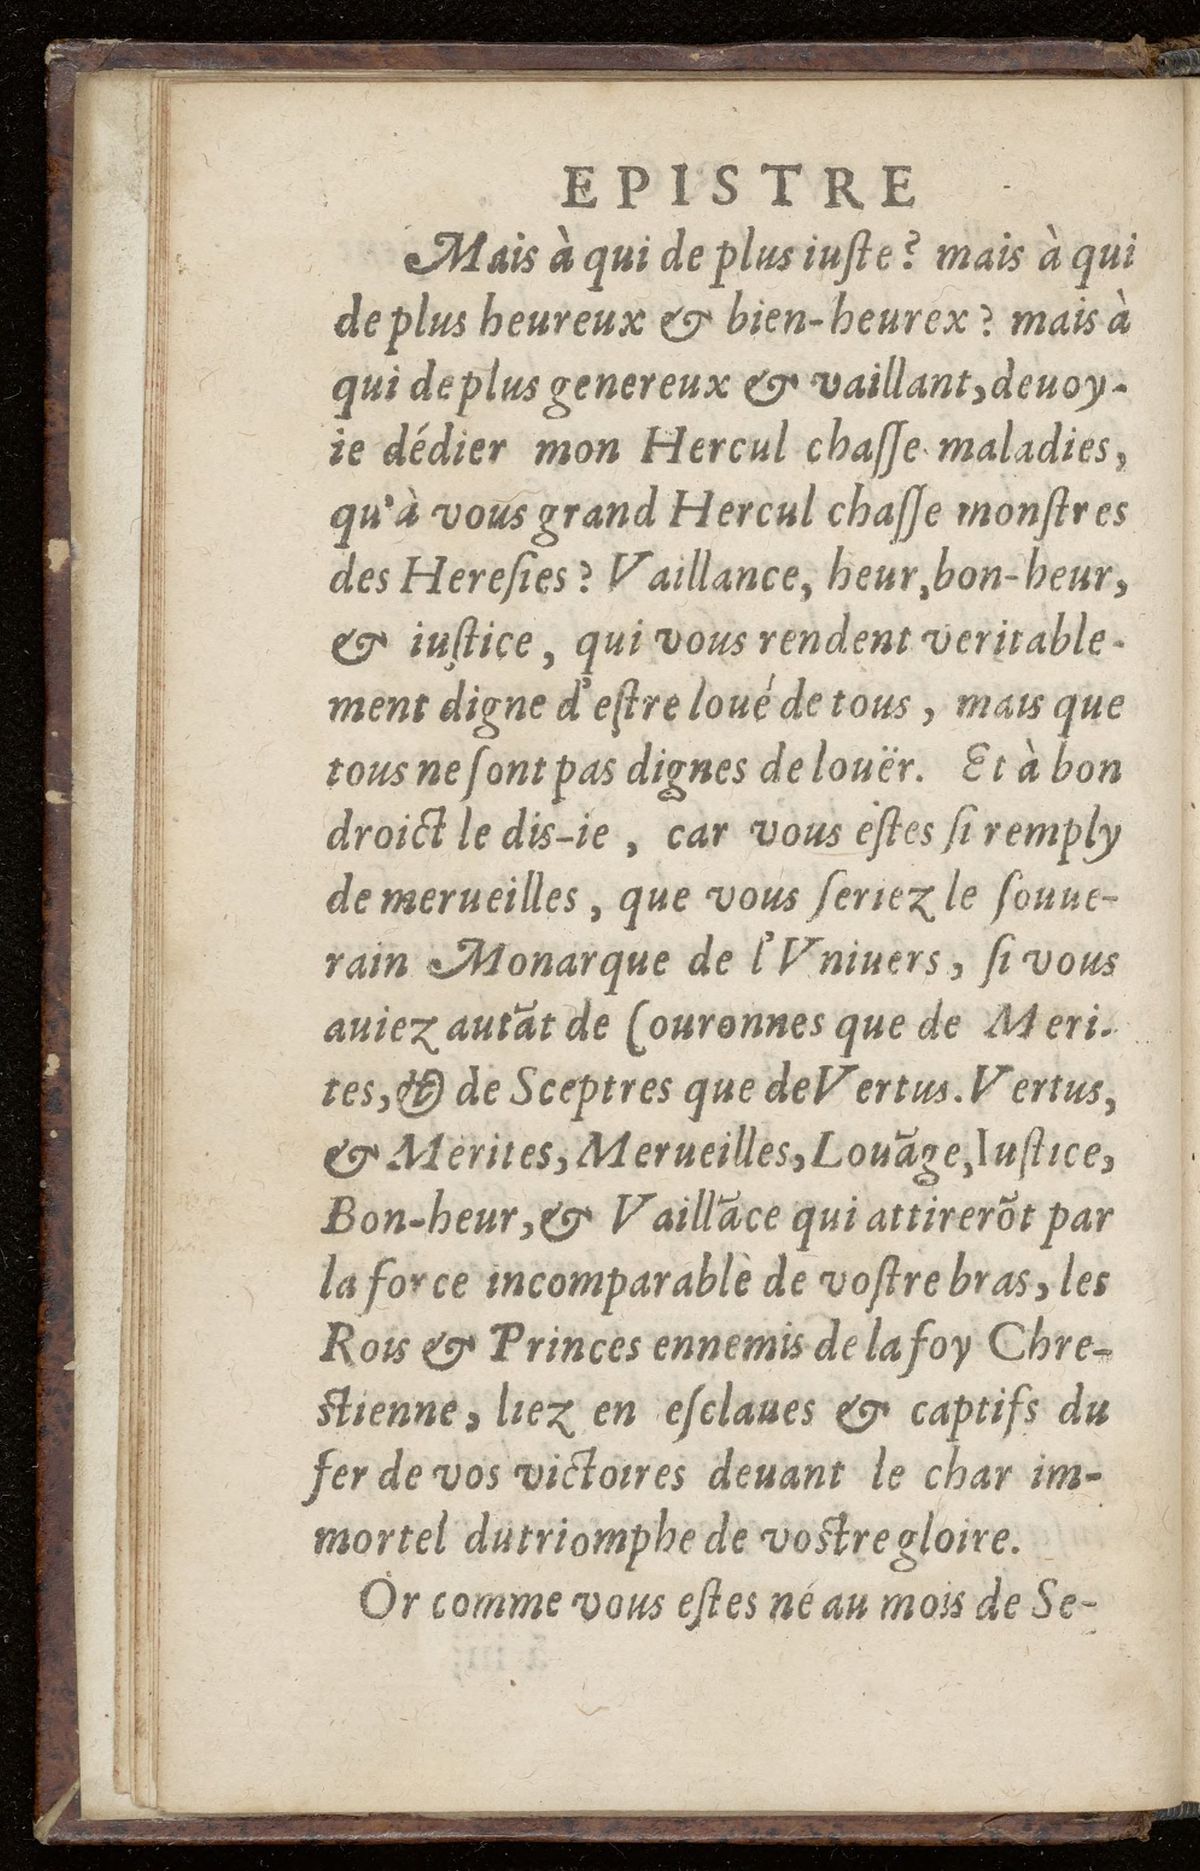 EPISTRE
Mais à qui de plus iuſte? mais à qui
de plus heureux & bien-heurex? mais à
qui de plus genereux & vaillant, deuoy-
ie dédier mon Hercul chaſſe maladies,
qu'à vous grand Hercul chaſſe monſtres
des Hereſies? Vaillance, heur, bon-heur,
& iuſtice, qui vous rendent veritable-
ment digne d'eſtre loué de tous, mais que
tous ne ſont pas dignes de louër. Et à bon
droict le dis-ie, car vous eſtes ſi remply
de merueilles, que vous ſeriez le ſouue-
rain Monarque de l'Vniuers, ſi vous
auiez autãt de Couronnes que de Meri-
tes, & de Sceptres que de Vertus. Vertus,
& Merites, Merueilles, Louãge, Iuſtice,
Bon-heur, & Vaillãce qui attirerõt par
la force incomparable de voſtre bras, les
Rois & Princes ennemis de la foy Chre-
ſtienne, liez en eſclaues & captifs du
fer de vos victoires deuant le char im-
mortel du triomphe de voſtre gloire.
Or comme vous eſtes né au mois de Se-